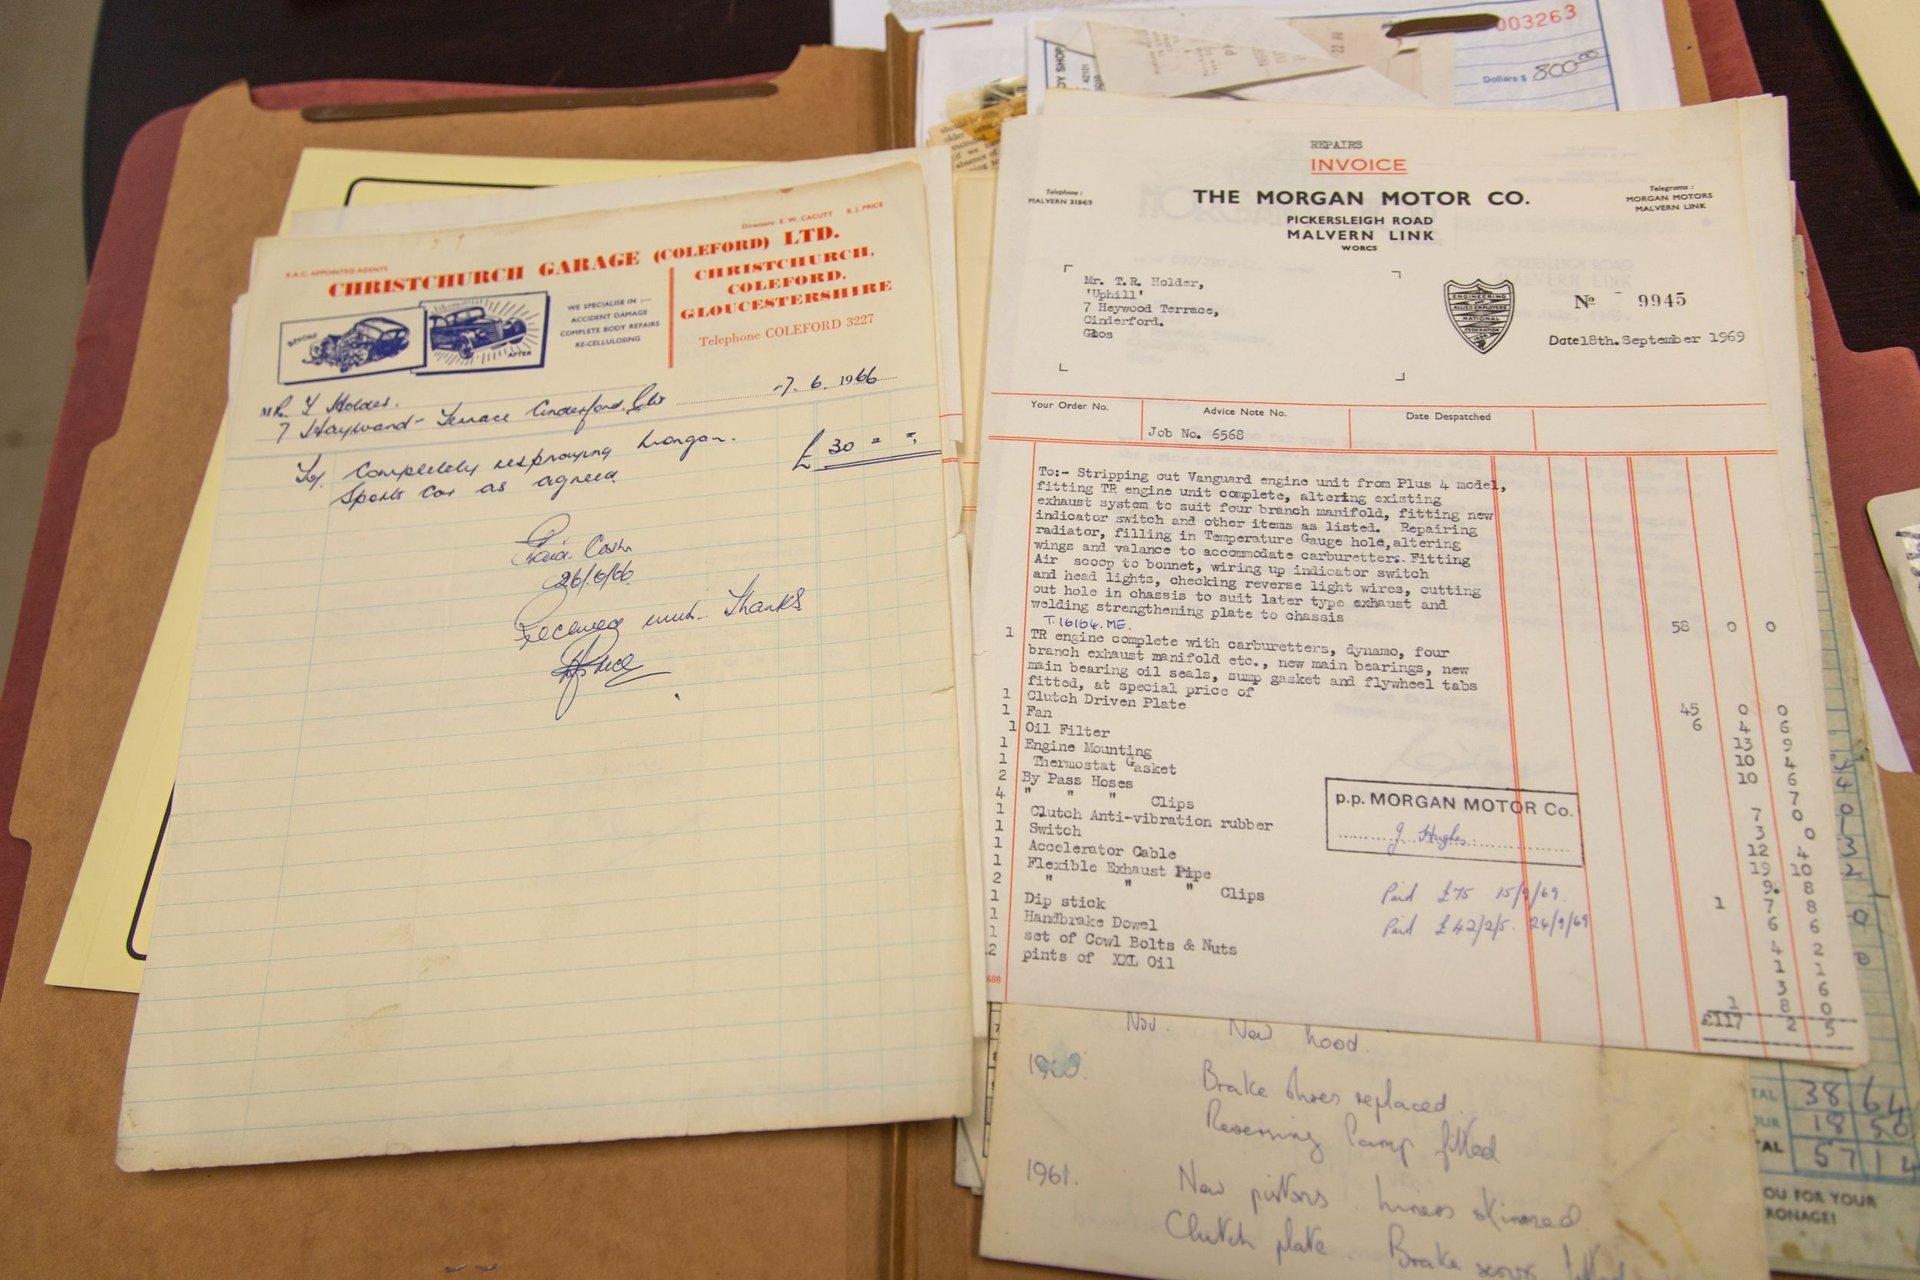 003263
Dollars $ 800.00
Directors: E. W. CACUTT R. J. PRICE
R.A.C. APPOINTED AGENTS
CHRISTCHURCH GARAGE (COLEFORD) LTD.
BEFORE
AFTER
WE SPECIALISE IN :—
ACCIDENT DAMAGE
COMPLETE BODY REPAIRS
RE-CELLULOSING
CHRISTCHURCH,
COLEFORD,
GLOUCESTERSHIRE
Telephone COLEFORD 3227
7. 6. 1966
MR. T Holder.
7 Hayward Terrace Cinderford. Glos
To/ Completely respraying Morgan.
Sports Car as agreed
£30 " ",
Paid Cash
26/6/66
Received with Thanks
REPAIRS
INVOICE
Telephone:
MALVERN 3104/5
THE MORGAN MOTOR CO.
PICKERSLEIGH ROAD
MALVERN LINK
WORCS
Telegrams:
MORGAN MOTORS
MALVERN LINK
Mr. T.R. Holder,
'Uphill'
7 Heywood Terrace,
Cinderford.
Glos
ENGINEERING
ALLIED EMPLOYERS
NATIONAL
FEDERATION
No 9945
Date 18th. September 1969
Your Order No.
Advice Note No.
Date Despatched
Job No. 6568
To:- Stripping out Vanguard engine unit from Plus 4 model,
fitting TR engine unit complete, altering existing
exhaust system to suit four branch manifold, fitting new
indicator switch and other items as listed. Repairing
radiator, filling in Temperature Gauge hole, altering
wings and valance to accommodate carburetters. Fitting
Air scoop to bonnet, wiring up indicator switch
and head lights, checking reverse light wires, cutting
out hole in chassis to suit later type exhaust and
welding strengthening plate to chassis
58 0 0
T.16164.ME.
1 TR engine complete with carburetters, dynamo, four
branch exhaust manifold etc., new main bearings, new
main bearing oil seals, sump gasket and flywheel tabs
fitted, at special price of
45 0 0
1 Clutch Driven Plate
6 4 6
1 Fan
13 9
1 Oil Filter
10 4
1 Engine Mounting
10 6
1 Thermostat Gasket
7
2 By Pass Hoses
7 0
4 " " " Clips
3 0
1 Clutch Anti-vibration rubber
12 4
1 Switch
19 10
1 Accelerator Cable
9. 8
1 Flexible Exhaust Pipe
1 7 8
2 " " " Clips
6 6
1 Dip stick
4 2
1 Handbrake Dowel
1 1
1 set of Cowl Bolts & Nuts
3 6
2 pints of XXL Oil
1 8 0
£117 2 5
p.p. MORGAN MOTOR Co.
J Hughes
Paid £75 15/9/69.
Paid £42/2/5. 24/9/69
688
Nov. New hood.
Brake shoes replaced.
Reversing Lamp fitted
1961. New pistons liners skimmed
Clutch plate Brake
38 64
18 50
TAL 57 14
OU FOR YOUR
RONAGE!